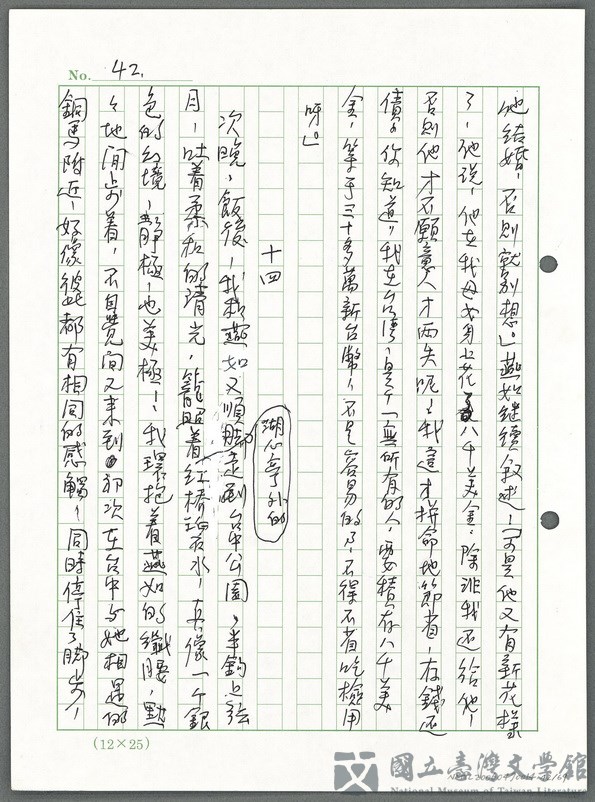 No. 42.
他結婚，否則就別想。」燕如繼續敘述，「可是他又有新花樣
了，他說，他在我母女身上花了八千美金，除非我还給他，
否則他才不願意人才兩失呢！我這才拼命地節省，存錢还
債，你知道，我在台湾，是个一無所有的人，要積存八千美
金，等于三十多萬新台幣，不是容易的了，不得不省吃檢用
呀。」
十四
次晚，飯後，我和燕如又順脚走到台中公園，半鈎上弦
湖心亭外的
月，吐着柔和的清光，籠照着紅橋 水，真像一个銀
色的幻境，靜極，也美極！我環抱着燕如的纖腰，默
々地閒步着，不自覺间又来到初次在台中与她相遇的
銅馬附近，好像彼此都有相同的感觸，同時停住了脚步，
(12×25)
國立臺灣文學館
National Museum of Taiwan Literature